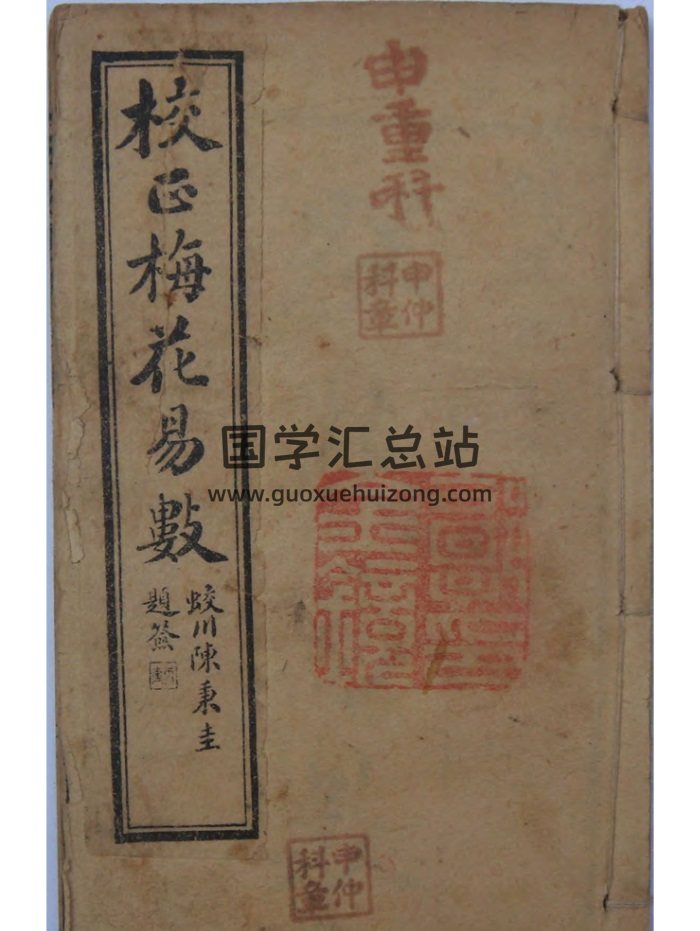 申重科
申仲
科章
校正梅花易數
蛟川陳秉圭
題簽
国学汇总站
www.guoxuehuizong.com
申仲
科章